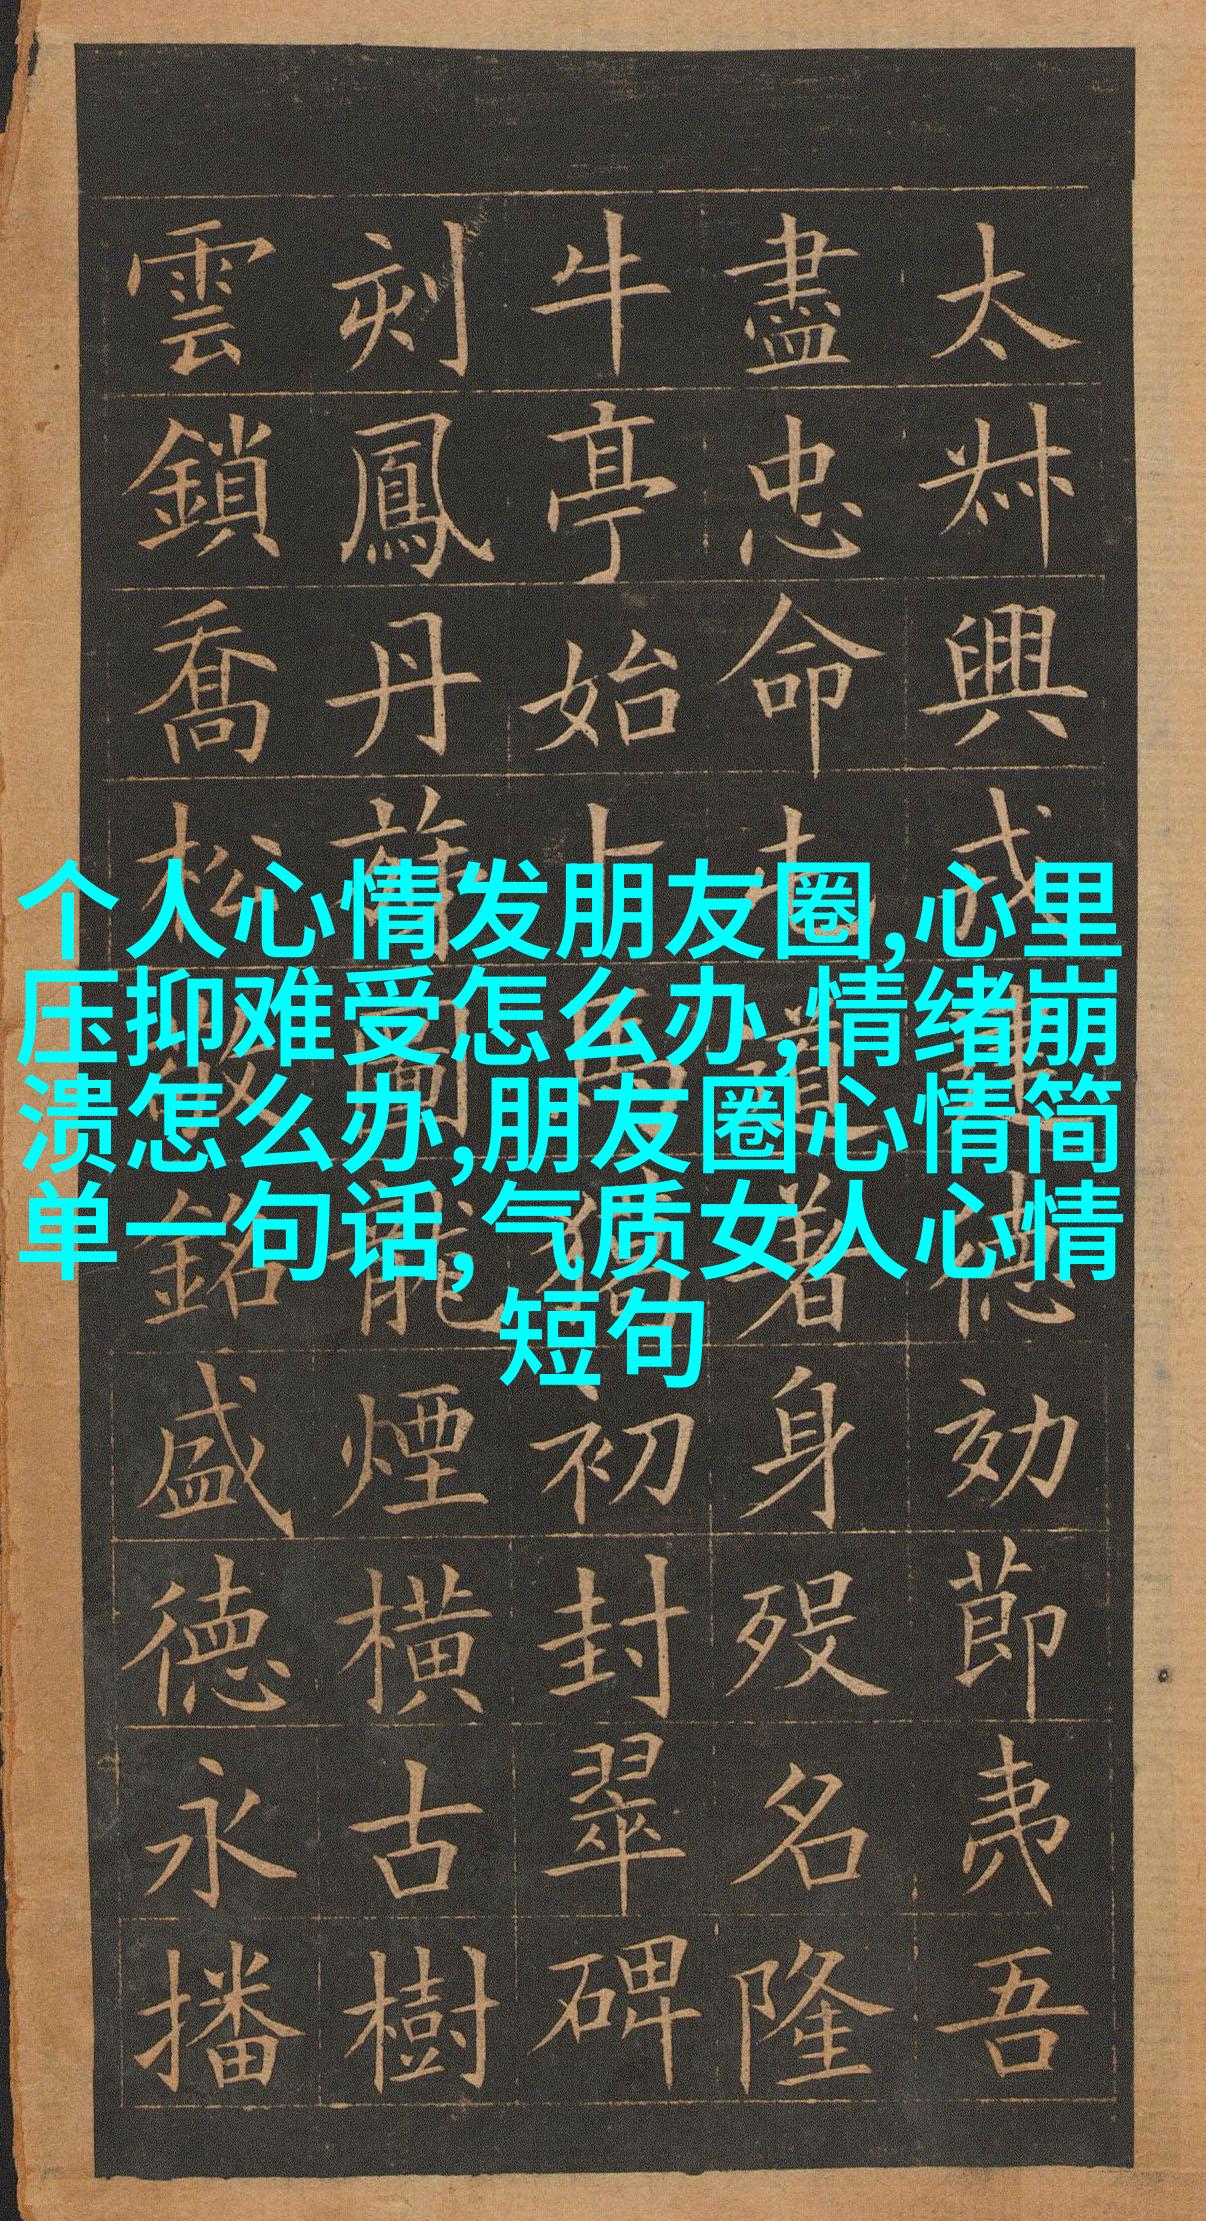 太叔興戎建德効節夷吾
盡忠命屯道著身歿名隆
牛亭始卜馬獵初封翠碑
刻鳳丹圖龍煙橫古樹
雲鎖喬松敬銘盛德永播
个人心情发朋友圈,心里
压抑难受怎么办,情绪崩
溃怎么办,朋友圈心情简
单一句话,气质女人心情
短句